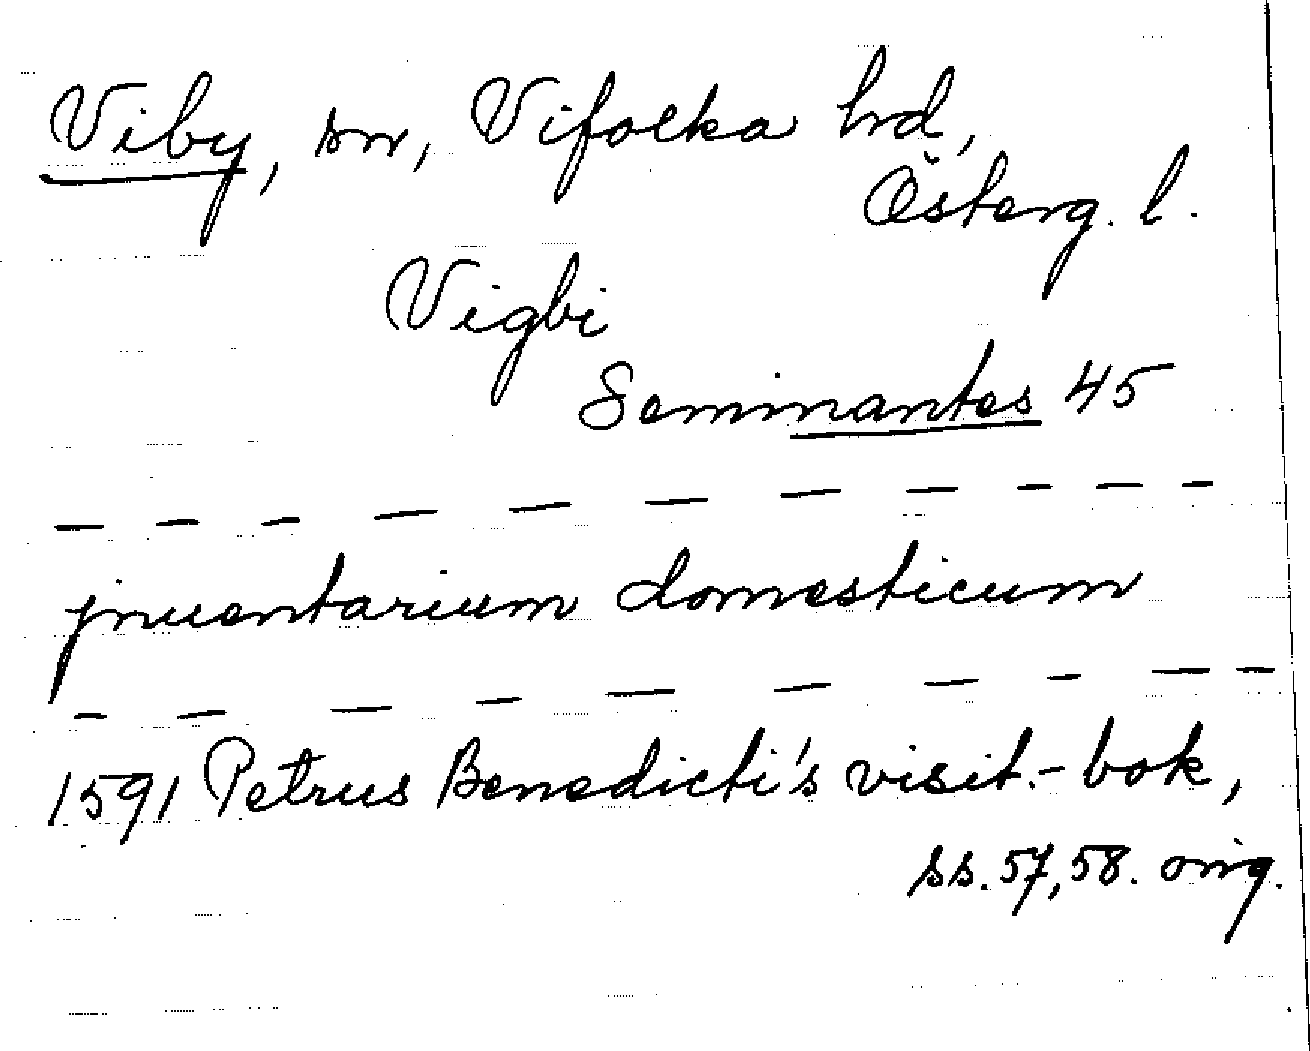 Viby, sn, Vifolka hd,
Österg. l.
Vigbi
Seminantes 45
— — — — — — — — — —
jnuentarium domesticum
— — — — — — — — —
1591 Petrus Benedicti's visit.-bok,
ss. 57, 58. orig.